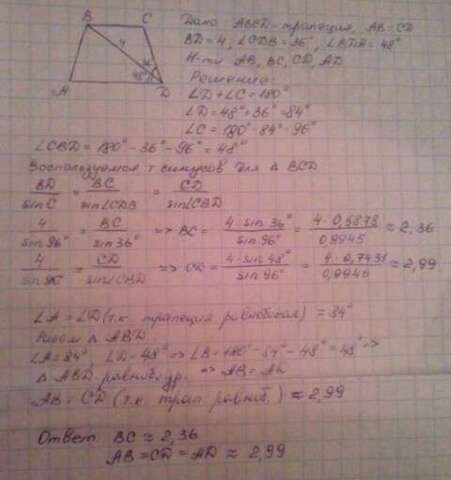 B C
4
36°
48°
A D
Дано ABCD-трапеция, AB=CD
BD=4, ∠CDB=36°, ∠BDA=48°
Н-ти AB, BC, CD, AD
Решение:
∠D+∠C=180°
∠D=48°+36°=84°
∠C=180°-84°=96°
∠CBD=180°-36°-96°=48°
Воспользуемся т синусов для Δ BCD
BD/sinC = BC/sin∠CDB = CD/sin∠CBD
4/sin96° = BC/sin36° => BC = 4·sin36°/sin96° = 4·0,5878/0,9945 ≈ 2,36
4/sin96° = CD/sin∠CBD => CD = 4·sin48°/sin96° = 4·0,7431/0,9945 ≈ 2,99
∠A=∠D (т.к. трапеция равнобокая) = 84°
Δ ABD
∠A=84° ∠D=48° => ∠B=180°-84°-48°=48° =>
Δ ABD-равноб. => AB=AD
AB=CD (т.к. трап равноб.) ≈ 2,99
Ответ BC ≈ 2,36
AB=CD=AD ≈ 2,99